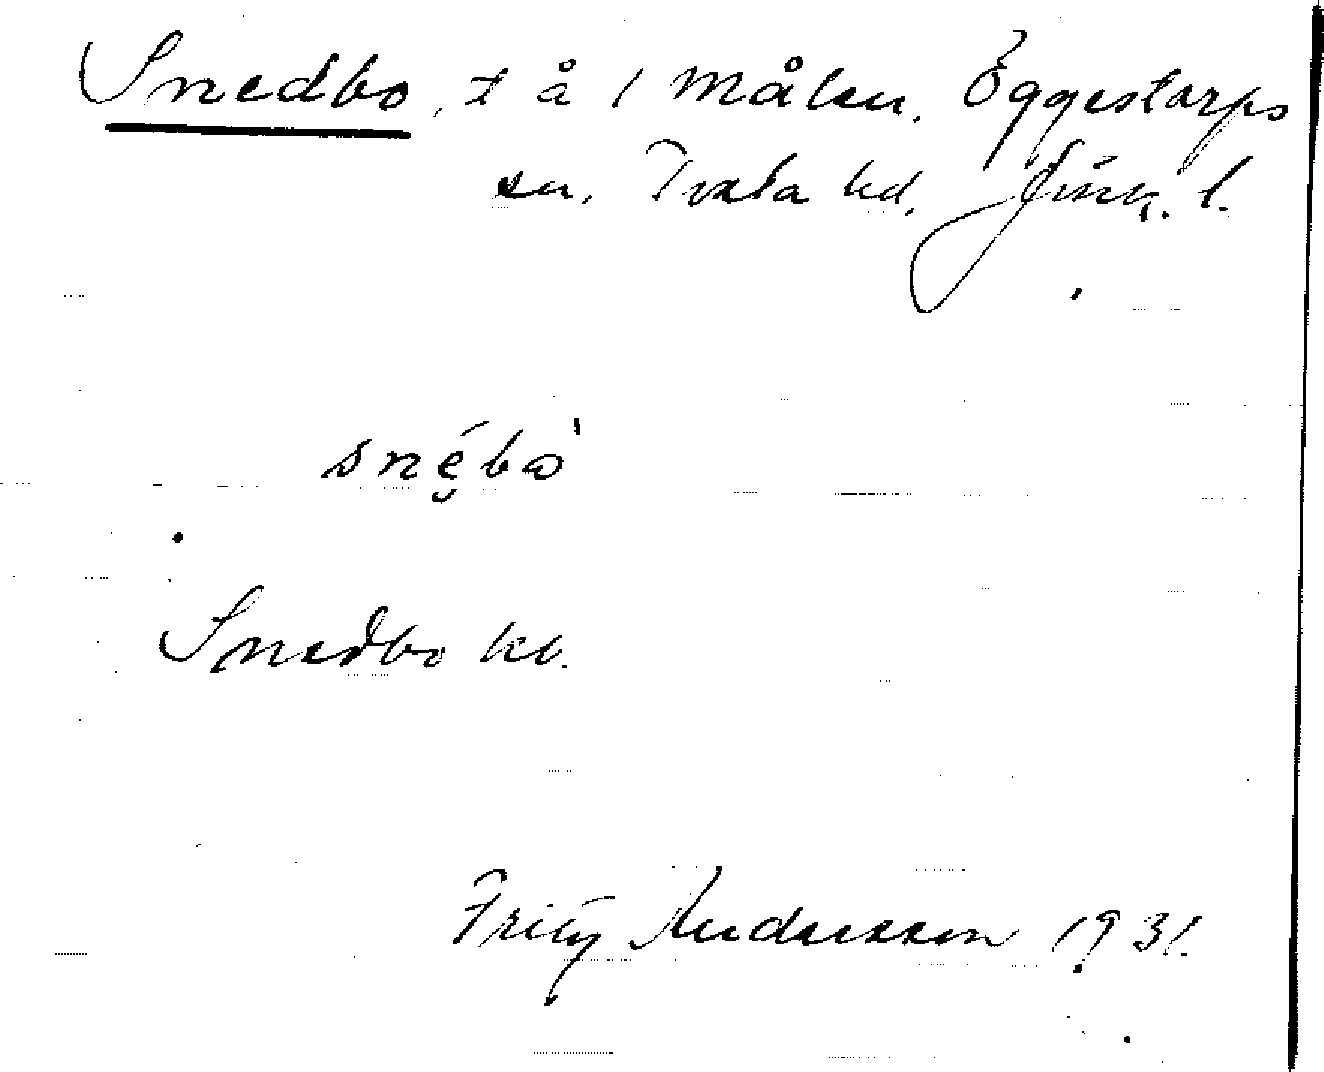 Snedbo, t å 1 Målen, Eggestorps
sn, Tveta hd, Jönk. l.
sné̮bω'
Snedbo kb.
Fritz Andersson 1931.